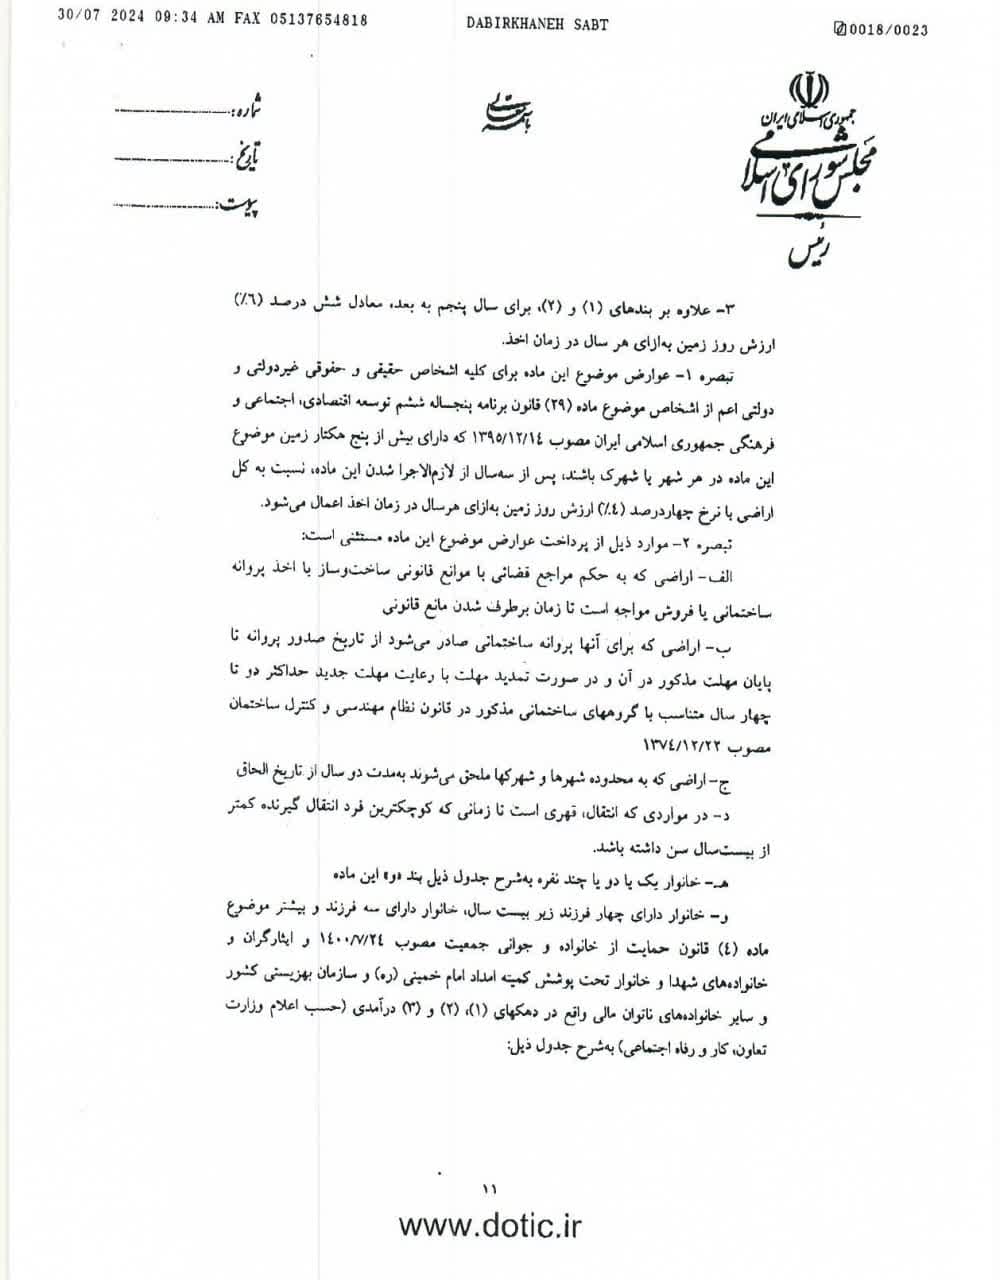 30/07 2024 09:34 AM FAX 05137654818 DABIRKHANEH SABT 0018/0023
جمهوری اسلامی ایران
مجلس شورای اسلامی
رئیس
باسمه تعالی
شماره:
تاریخ:
پیوست:
۳- علاوه بر بندهای (۱) و (۲)، برای سال پنجم به بعد، معادل شش درصد (۶٪)
ارزش روز زمین به‌ازای هر سال در زمان اخذ.
تبصره ۱- عوارض موضوع این ماده برای کلیه اشخاص حقیقی و حقوقی غیردولتی و
دولتی اعم از اشخاص موضوع ماده (۲۹) قانون برنامه پنجساله ششم توسعه اقتصادی، اجتماعی و
فرهنگی جمهوری اسلامی ایران مصوب ۱۳۹۵/۱۲/۱۴ که دارای بیش از پنج هکتار زمین موضوع
این ماده در هر شهر یا شهرک باشند، پس از سه‌سال از لازم‌الاجرا شدن این ماده، نسبت به کل
اراضی با نرخ چهاردرصد (۴٪) ارزش روز زمین به‌ازای هرسال در زمان اخذ اعمال می‌شود.
تبصره ۲- موارد ذیل از پرداخت عوارض موضوع این ماده مستثنی است:
الف- اراضی که به حکم مراجع قضائی با موانع قانونی ساخت‌وساز یا اخذ پروانه
ساختمانی یا فروش مواجه است تا زمان برطرف شدن مانع قانونی
ب- اراضی که برای آنها پروانه ساختمانی صادر می‌شود از تاریخ صدور پروانه تا
پایان مهلت مذکور در آن و در صورت تمدید مهلت با رعایت مهلت جدید حداکثر دو تا
چهار سال متناسب با گروههای ساختمانی مذکور در قانون نظام مهندسی و کنترل ساختمان
مصوب ۱۳۷۴/۱۲/۲۲
ج- اراضی که به محدوده شهرها و شهرکها ملحق می‌شوند به‌مدت دو سال از تاریخ الحاق
د- در مواردی که انتقال، قهری است تا زمانی که کوچکترین فرد انتقال گیرنده کمتر
از بیست‌سال سن داشته باشد.
هـ- خانوار یک یا دو یا چند نفره به‌شرح جدول ذیل بند «و» این ماده
و- خانوار دارای چهار فرزند زیر بیست سال، خانوار دارای سه فرزند و بیشتر موضوع
ماده (۴) قانون حمایت از خانواده و جوانی جمعیت مصوب ۱۴۰۰/۷/۲۴ و ایثارگران و
خانواده‌های شهدا و خانوار تحت پوشش کمیته امداد امام خمینی (ره) و سازمان بهزیستی کشور
و سایر خانواده‌های ناتوان مالی واقع در دهکهای (۱)، (۲) و (۳) درآمدی (حسب اعلام وزارت
تعاون، کار و رفاه اجتماعی) به‌شرح جدول ذیل:
۱۱
www.dotic.ir